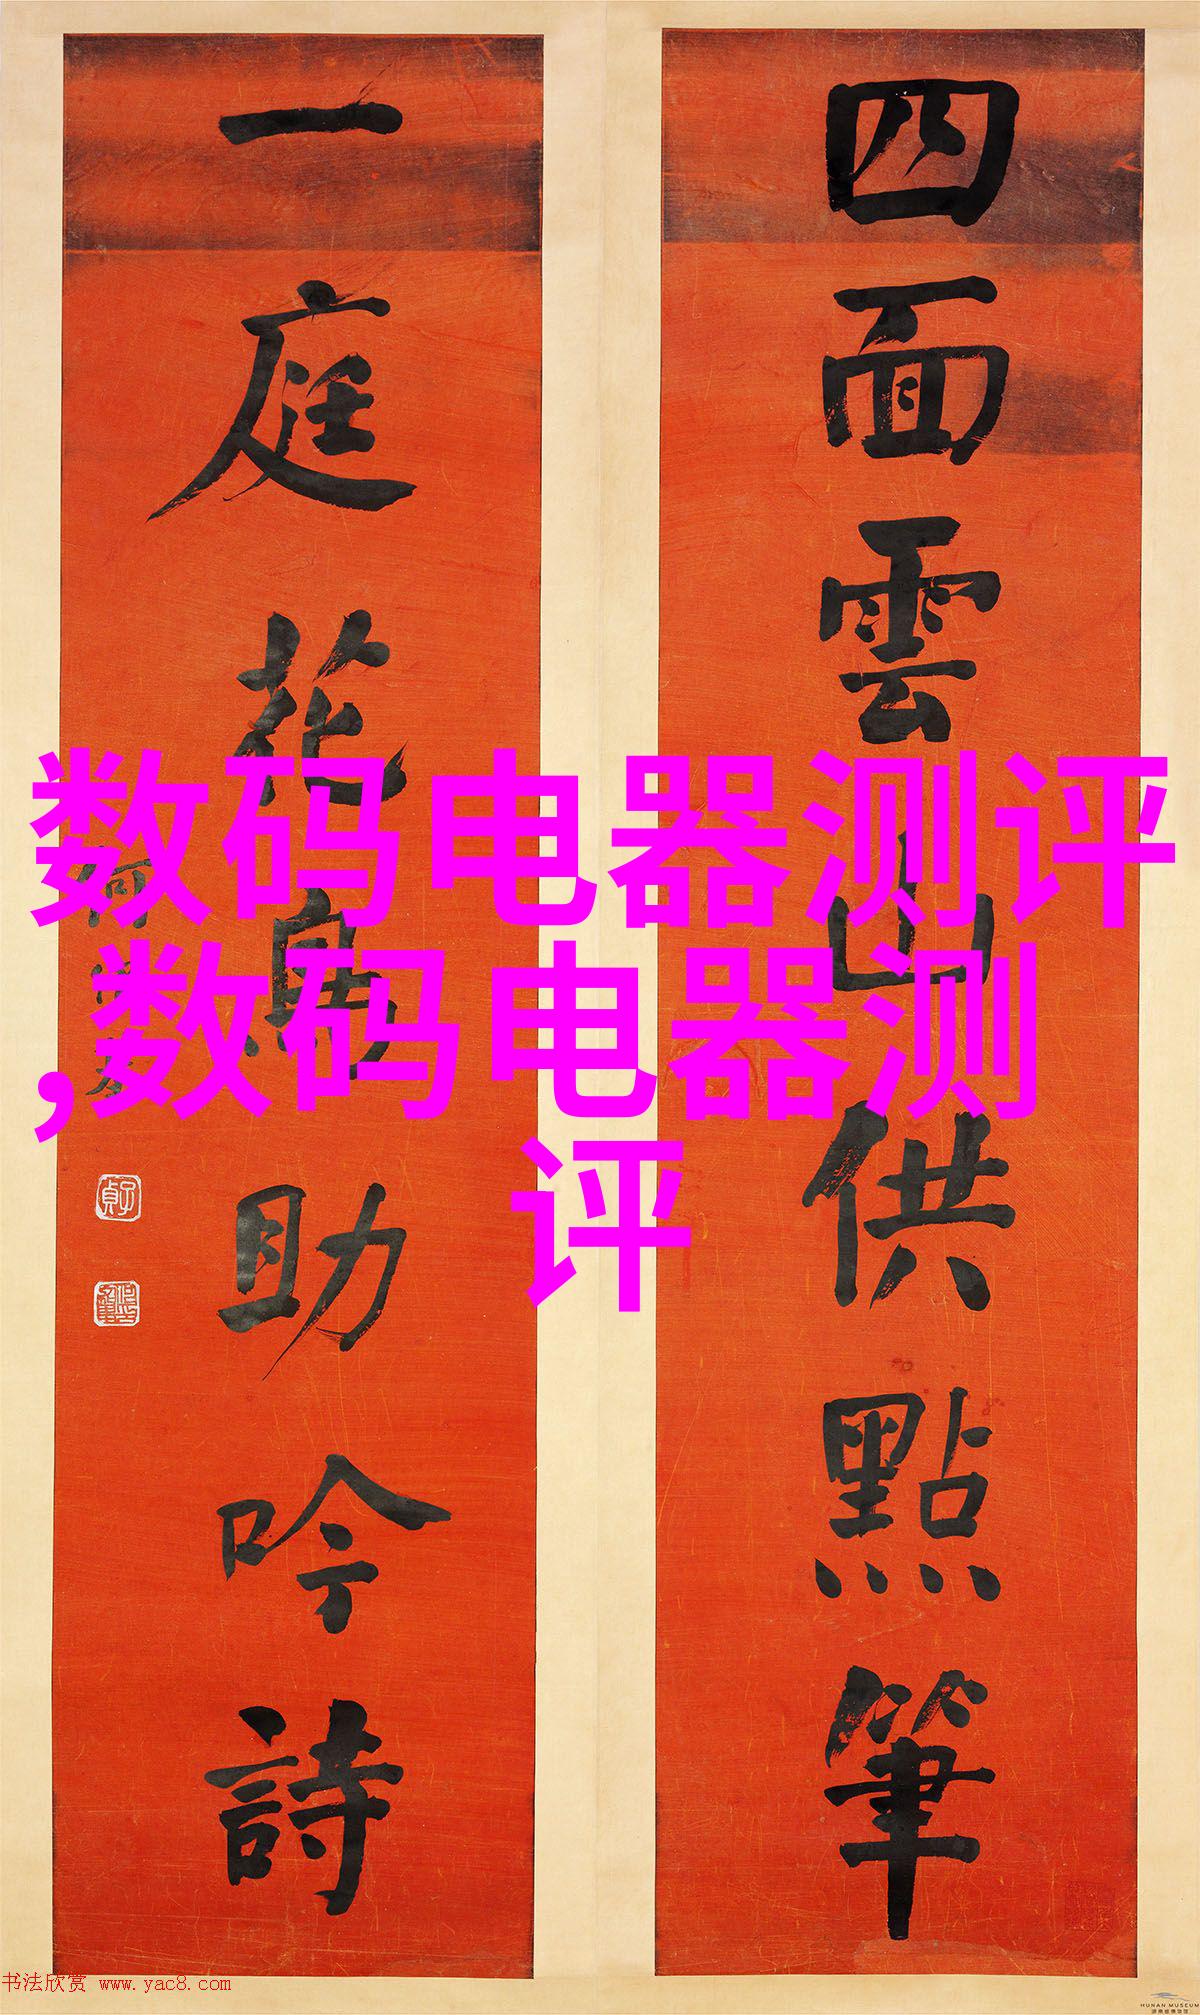 四面雲山供點筆
一庭花鳥助吟詩
何
子貞
数码电器测评
,数码电器测
评
书法欣赏 www.yac8.com
HUNAN MUSEUM